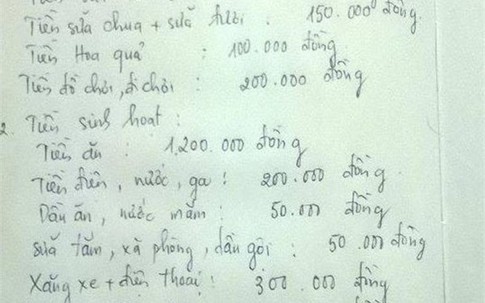 Tiền sữa chua + sữa tươi : 150.000 đồng.
Tiền Hoa quả : 100.000 đồng
Tiền đồ chơi, đi chơi : 200.000 đồng
2. Tiền sinh hoạt :
Tiền ăn : 1.200.000 đồng
Tiền điện, nước, ga : 200.000 đồng.
Dầu ăn, nước mắm : 50.000 đồng
sữa tắm, xà phòng, dầu gội : 50.000 đồng
Xăng xe + điện thoại : 300.000 đồng